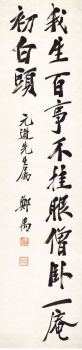 我生百事不挂眼僧卧一庵
初白頭
元道先生属 鄭禹